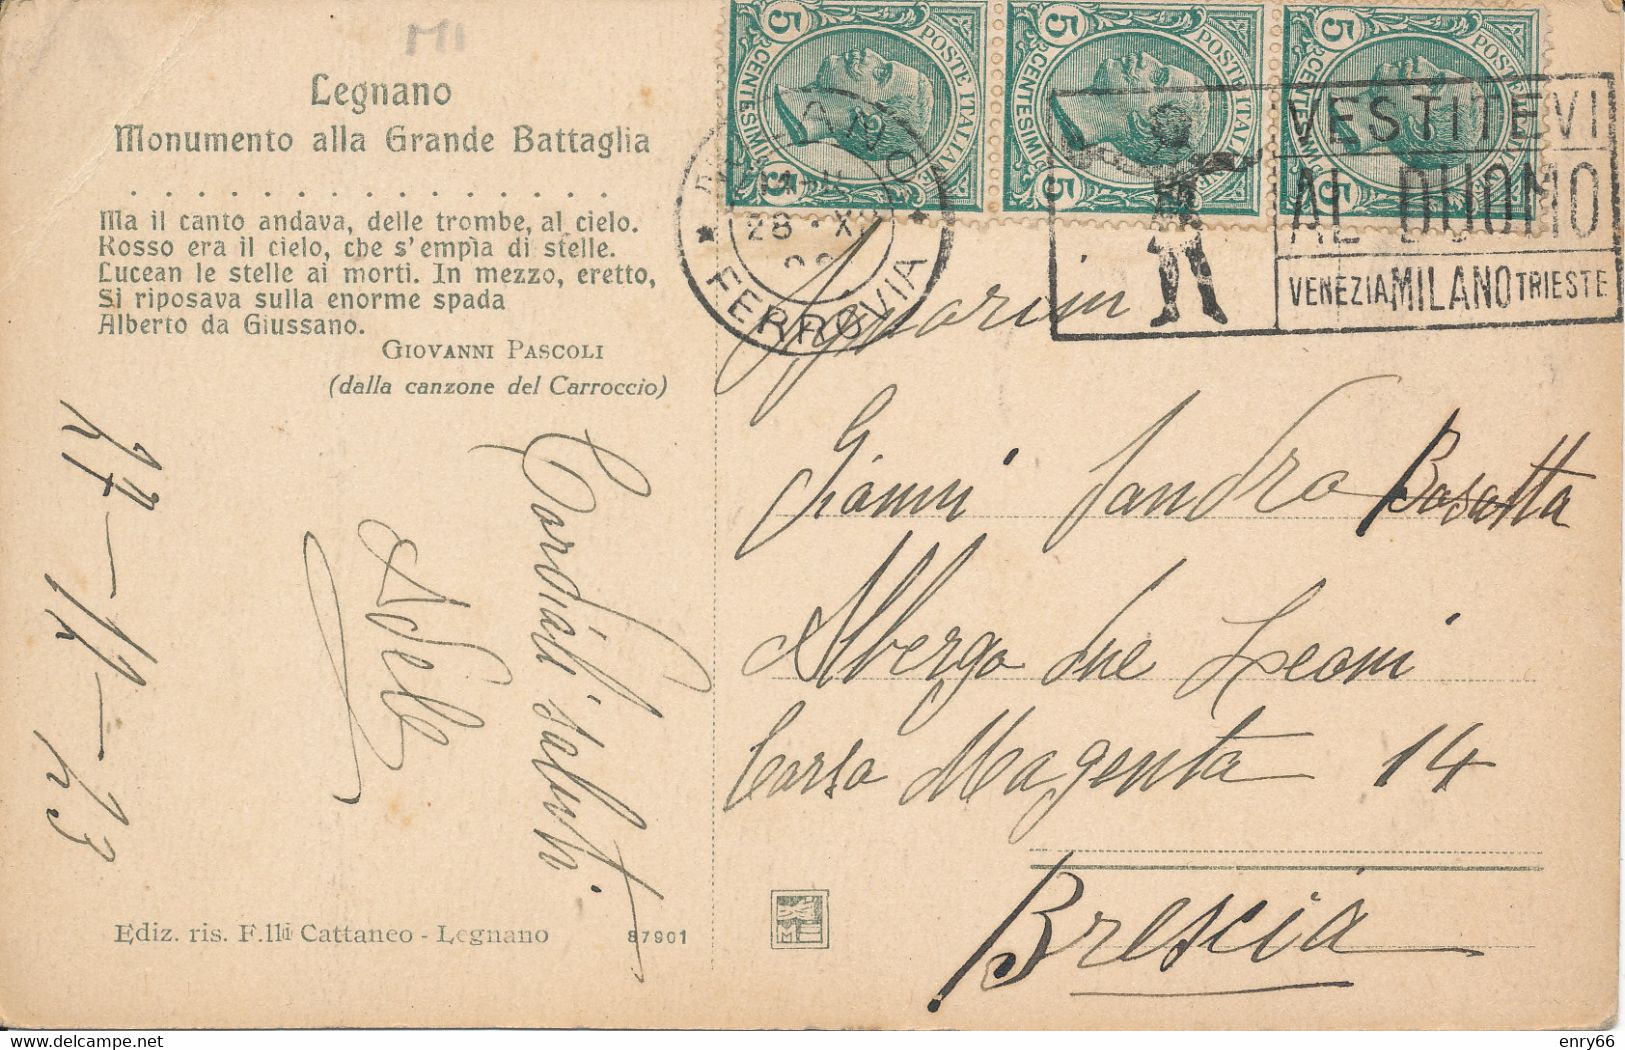 MI
Legnano
Monumento alla Grande Battaglia
. . . . . . . . . . . . . . . . .
Ma il canto andava, delle trombe, al cielo.
Rosso era il cielo, che s'empìa di stelle.
Lucean le stelle ai morti. In mezzo, eretto,
Si riposava sulla enorme spada
Alberto da Giussano.
GIOVANNI PASCOLI
(dalla canzone del Carroccio)
Cordiali saluti
Adele
27-12-23
Ediz. ris. F.lli Cattaneo - Legnano
87901
POSTE ITALIANE
5 CENTESIMI 5
POSTE ITALIANE
5 CENTESIMI 5
POSTE ITALIANE
5 CENTESIMI 5
MILANO
28 · XII
FERROVIA
VESTITEVI
AL DUOMO
VENEZIA MILANO TRIESTE
Signorin
Gianni Sandro Basotta
Albergo due Leoni
Corso Magenta 14
Brescia
enry66